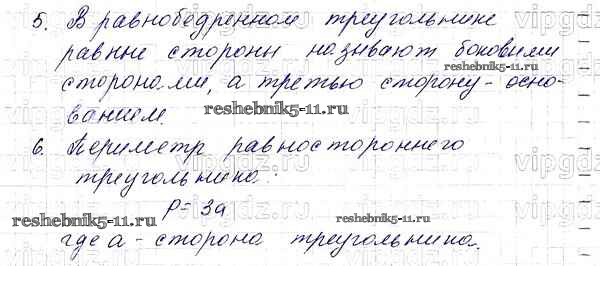 5. В равнобедренном треугольнике
равные стороны называют боковыми
сторонами, а третью сторону - осно-
ванием.
reshebnik5-11.ru
6. Периметр равностороннего
треугольника:
P = 3a
reshebnik5-11.ru
reshebnik5-11.ru
где a - сторона треугольника.
vipgdz.ru